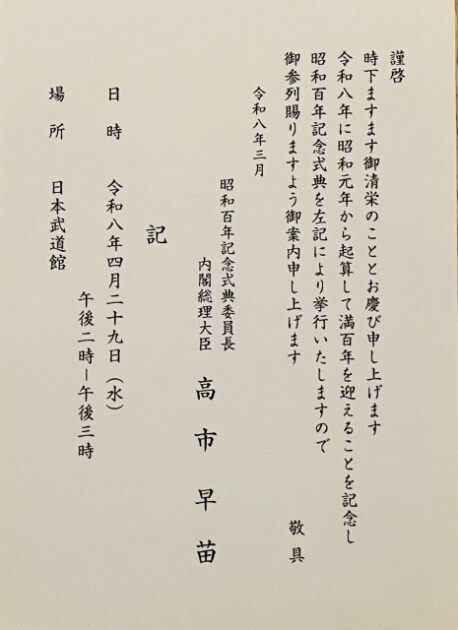 謹啓
時下ますます御清栄のこととお慶び申し上げます
令和八年に昭和元年から起算して満百年を迎えることを記念し
昭和百年記念式典を左記により挙行いたしますので
御参列賜りますよう御案内申し上げます
敬具
令和八年三月
昭和百年記念式典委員長
内閣総理大臣 高市早苗
記
日時 令和八年四月二十九日（水）
午後二時－午後三時
場所 日本武道館